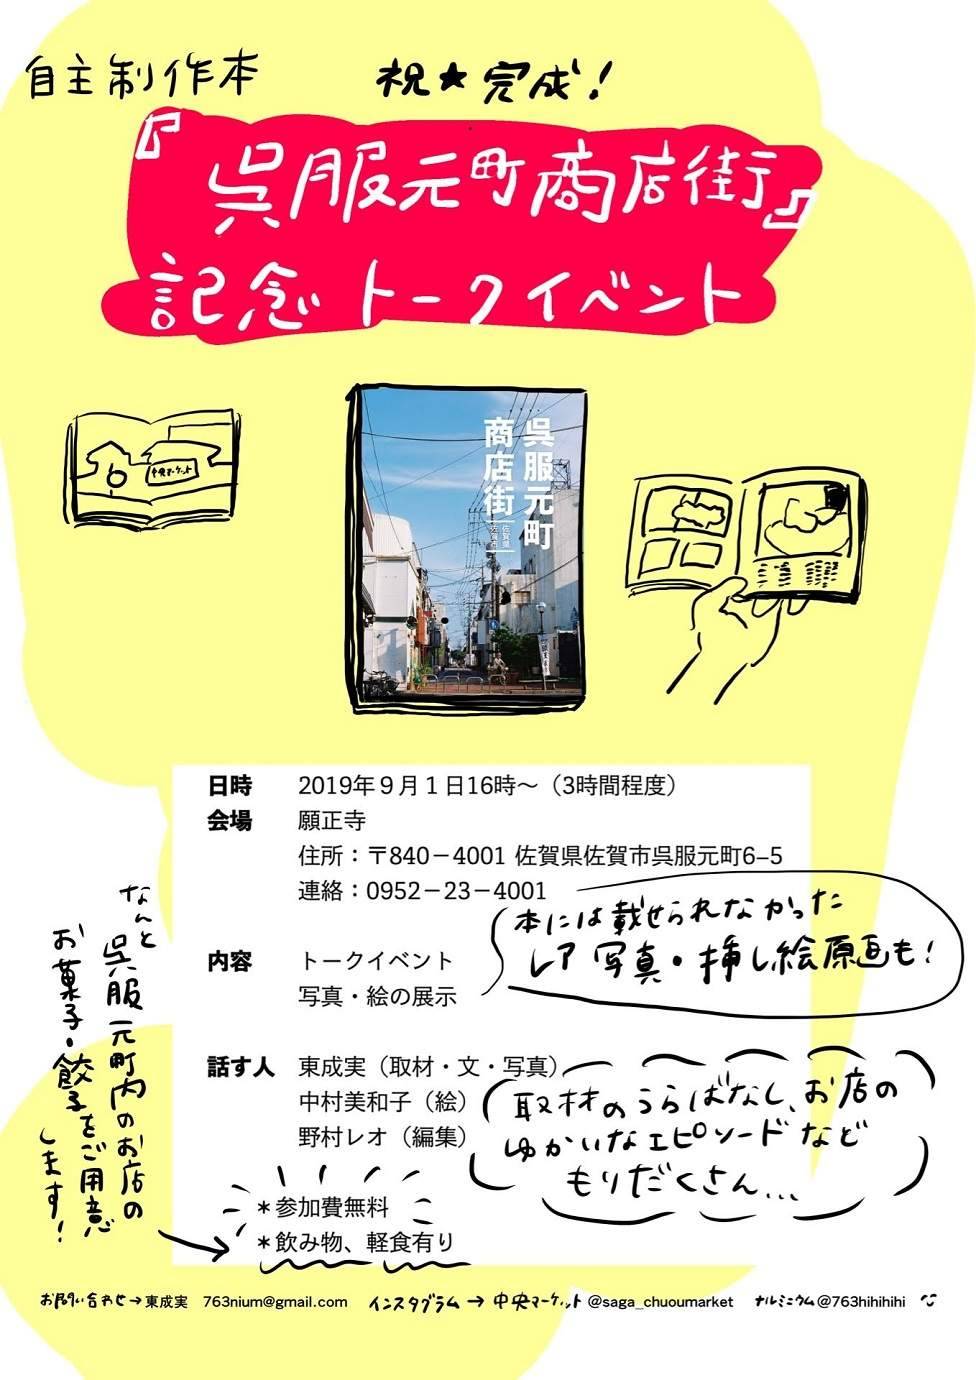 自主制作本
祝★完成!
『呉服元町商店街』
記念トークイベント
中央マーケット
呉服元町
商店街
佐賀県
佐賀市
日時 2019年９月１日16時〜（3時間程度）
会場 願正寺
住所：〒840−4001 佐賀県佐賀市呉服元町6−5
連絡：0952−23−4001
本には載せられなかった
レア写真・挿し絵原画も!
内容 トークイベント
写真・絵の展示
なんと
呉服元町内のお店の
お菓子・餃子をご用意
します!
話す人 東成実（取材・文・写真）
中村美和子（絵）
野村レオ（編集）
取材のうらばなし、お店の
ゆかいなエピソードなど
もりだくさん...
＊参加費無料
＊飲み物、軽食有り
お問い合わせ→東成実 763nium@gmail.com インスタグラム→中央マーケット@saga_chuoumarket ナルミニウム@763hihihihi